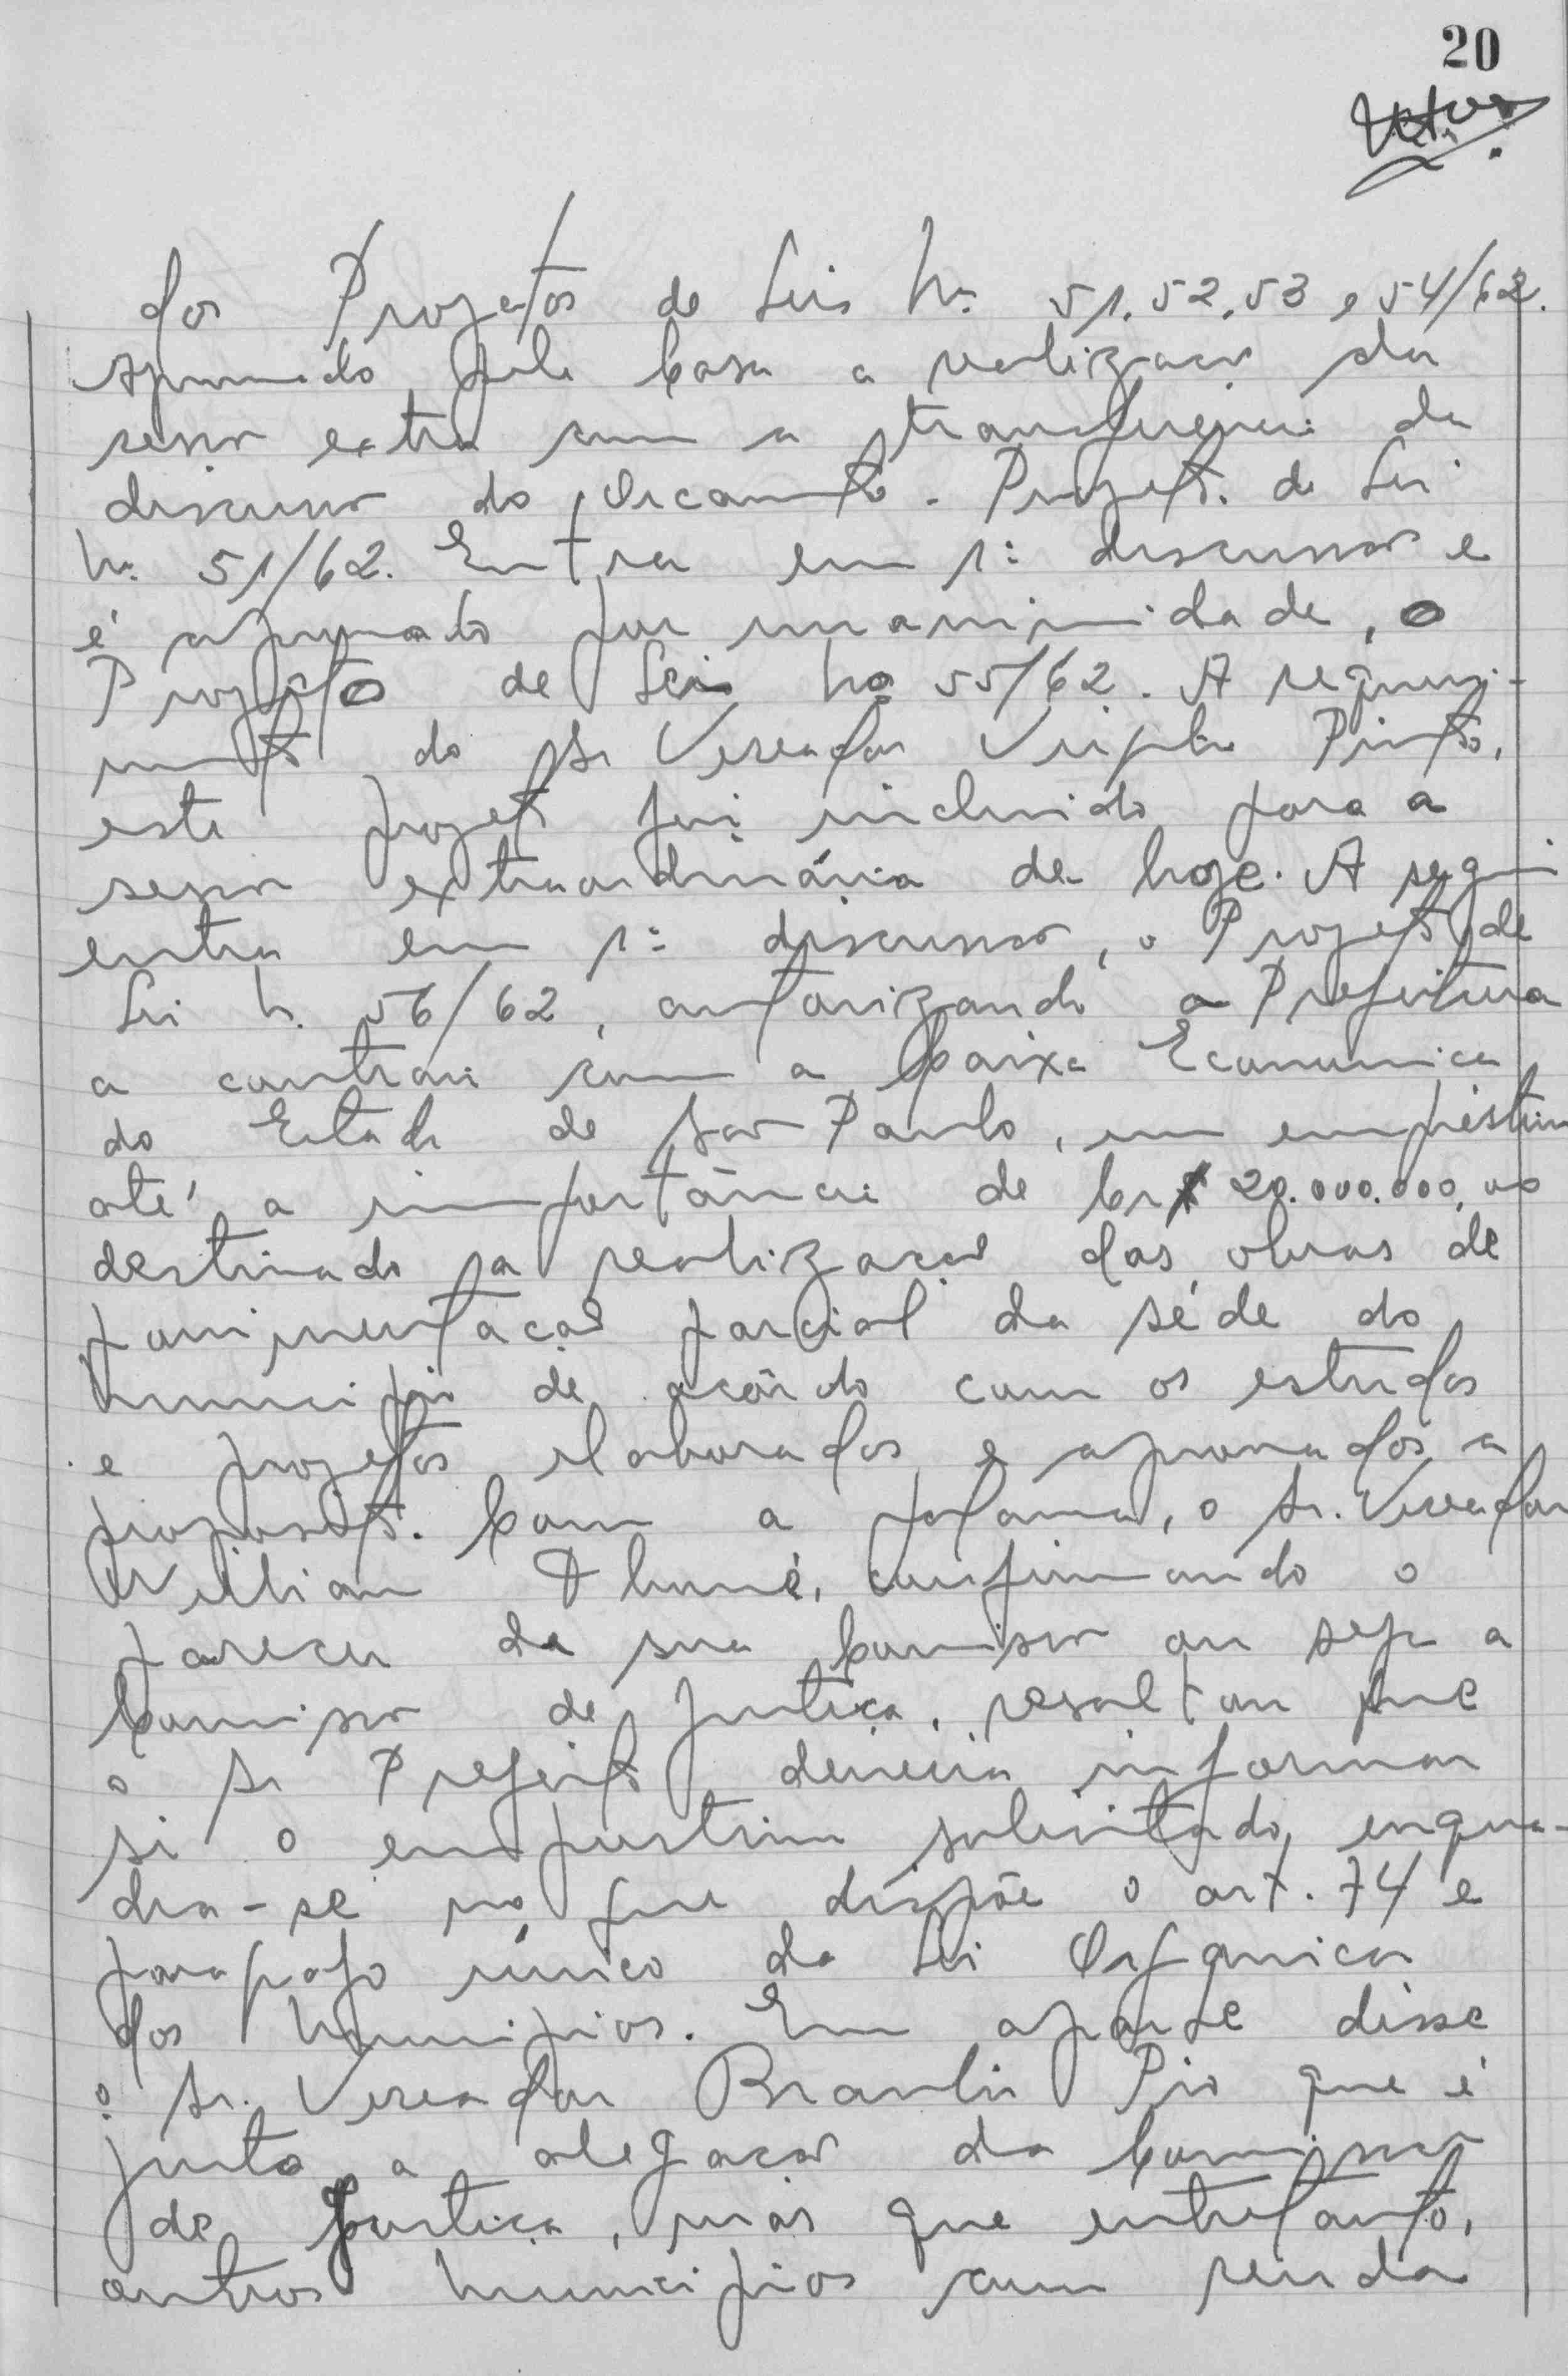 20
dos Projetos de Leis Nº 51, 52, 53 e 54/62.
Aprovado pela Casa a realizacão da
sessão extra com a transferencia da
discussão do Orcamento. Projeto de Lei
Nº 51/62. Entra em 1ª discussão e
é aprovado por unanimidade, o
Projeto de Lei nº 55/62. A requeri-
mento do Sr Vereador Pinto,
este projeto foi incluido para a
sessão extraordinária de hoje. A seguir
entra em 1ª discussão, o Projeto de
Lei N. 56/62, autorizando a Prefeitura
a contrair com a Caixa Economica
do Estado de São Paulo, um empréstimo
até a importância de Cr$ 20.000.000,00
destinado a realizacão das obras de
pavimentacão parcial da séde do
Municipio de acôrdo com os estudos
e projetos elaborados e aprovados a
proposito. Com a palavra, o Sr. Vereador
Willian confirmando o
parecer da sua Comissão ou seja a
Comissão de Justiça, resaltou que
o Sr Prefeito deveria informar
si o emprestimo solicitado, enqua-
dra-se no que dispõe o art. 74 e
paragrafo único da Lei Organica
dos Municipios. Em aparte disse
o Sr. Vereador Braulio Pio que é
justa a alegacão da Comissão
de Justiça, mas que entretanto,
outros Municipios com renda